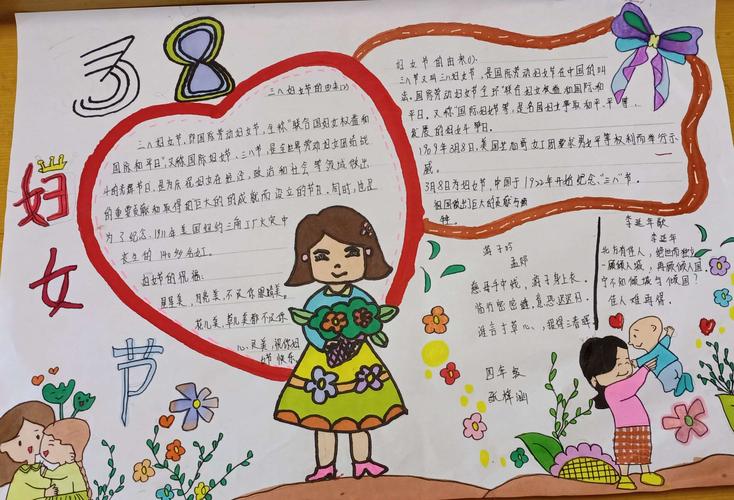 38
妇女节
三八妇女节的由来(2)
三八妇女节,即国际劳动妇女节,全称"联合国妇女权益和
国际和平日",又称国际妇女节、三八节,是全世界劳动妇女团结战
斗的光辉节日,是为庆祝妇女在经济、政治和社会等领域做出
的重要贡献和取得的巨大的成就而设立的节日。同时,也是
为了纪念1911年美国纽约三角工厂火灾中
丧生的140多名女工。
妇女节的祝福:
星星美,月亮美,不及你眼睛美。
花儿美,草儿美都不及你
心灵美,祝你妇
女节快乐
妇女节的由来(1)
三八节又叫三八妇女节,是国际劳动妇女节在中国的叫
法。国际劳动妇女节全称"联合妇女权益和国际和
平日。又称"国际妇女节等,是各国妇女争取和平、平等、
发展的妇女节日。
1909年3月8日,美国芝加哥女工因要求男女平等权利而举行示
威。
3月8日为妇女节,中国于1922年开始纪念"三八"节。
游子吟
孟郊
慈母手中线,游子身上衣。
临行密密缝,意恐迟迟归。
谁言寸草心,报得三春晖
四年级
李延年歌
李延年
北方有佳人,绝世而独立
一顾倾人城,再顾倾人国
宁不知倾城与倾国?
佳人难再得。